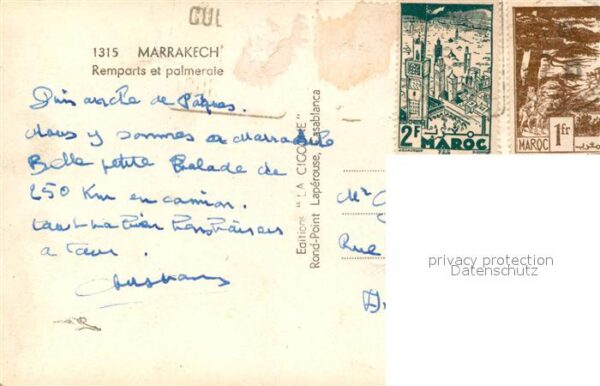 CUL
1315 MARRAKECH
Remparts et palmeraie
Dimanche de Pâques.
Nous y sommes a Marrakech
Belle petite Balade de
250 Km en camion.
a tous.
Editions "LA CIGOGNE"
Rond-Point Lapérouse, Casablanca
2F
MAROC
FES
1fr
MAROC
Mr
Rue
privacy protection
Datenschutz